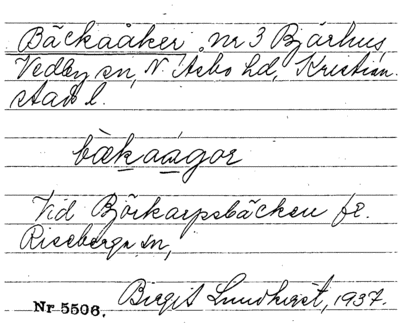 Bäckaåker nr 3 Bjärhus,
Vedby sn, N. Åsbo hd, Kristian-
stads l.
bækaágor
Vid Björkarpsbäcken fr.
Riseberga sn,
Birgit Lundkvist, 1937.
Nr 5506.